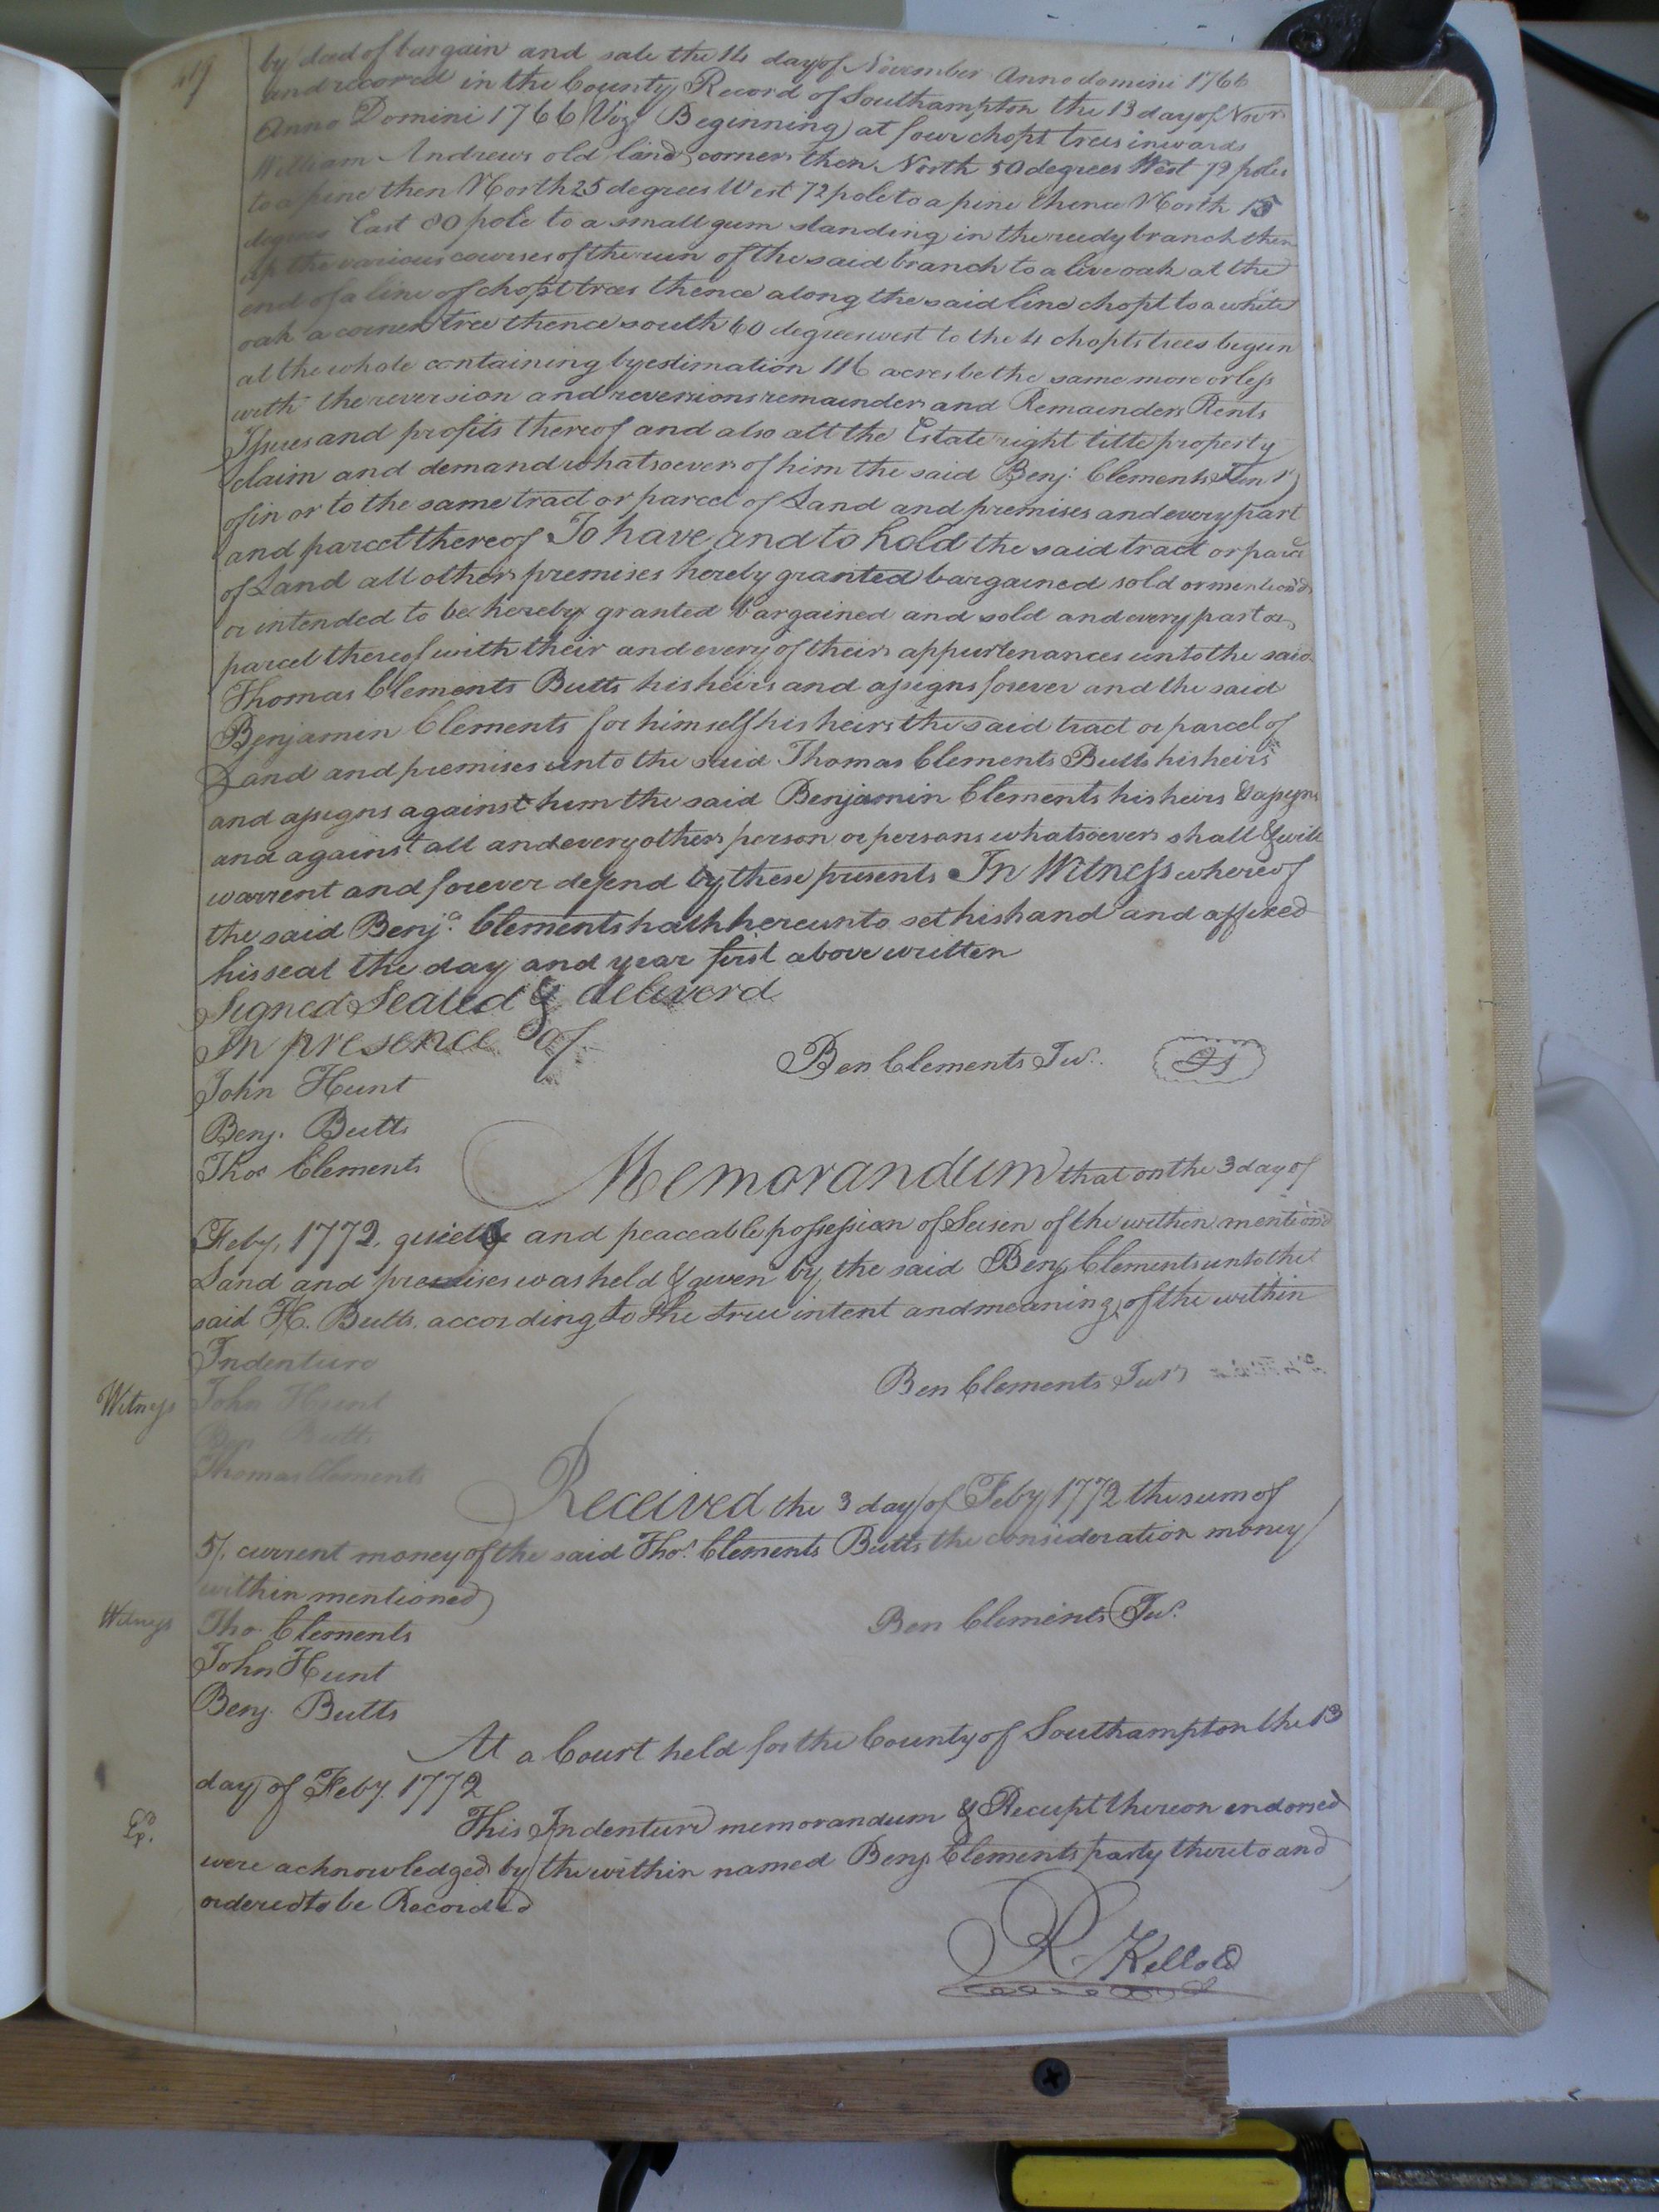 419
by deed of bargain and sale the 14 day of November Anno domini 1766
and recored in the County Record of Southampton the 13 day of Novr
Anno Domini 1766 Viz Beginning at four chopt trees inwards
William Andrews old land corner then North 50 degrees West 72 poles
to a pine then North 25 degrees West 72 pole to a pine thence North 15
degrees East 80 pole to a small gum standing in the reedy branch then
up the various courses of the run of the said branch to a live oak at the
end of a line of chopt trees thence along the said line chopt to a white
oak a corner tree thence south 60 degrees west to the 4 chopts trees begun
at the whole containing by estimation 116 acres be the same more or less
with the reversion and reversions remainder and Remainders Rents
Issues and profits thereof and also all the Estate right title property
claim and demand whatsoever of him the said Benj. Clements Junr
of in or to the same tract or parcel of Land and premises and every part
and parcel thereof To have and to hold the said tract or parcel
of Land all other premises hereby granted bargained sold or mention'd
or intended to be hereby granted bargained and sold and every part or
parcel thereof with their and every of their appurtenances unto the said
Thomas Clements Butts his heirs and assigns forever and the said
Benjamin Clements for himself his heirs the said tract or parcel of
Land and premises unto the said Thomas Clements Butts his heirs
and assigns against him the said Benjamin Clements his heirs & assigns
and against all and every other person or persons whatsoever shall & will
warrent and forever defend by these presents In Witness whereof
the said Benja Clements hath hereunto set his hand and affixed
his seal the day and year first above written
Signed Sealed & deliverd
In presence of
Ben Clements Jur. LS
John Hunt
Benj. Butts
Thos Clements
Memorandum that on the 3 day of
Feby, 1772, quietly and peaceable possession of Seisen of the within mention'd
Land and premises was held & given by the said Benj Clements unto the
said H. Butts, according to the true intent and meaning of the within
Indenture
Ben Clements Junr
Witness John Hunt
Ben Butts
Thomas Clements
Received the 3 day of Feby 1772 the sum of
5/. current money of the said Thos. Clements Butts the consideration money
within mentioned
Ben Clements Jur.
Witness Tho. Clements
John Hunt
Benj. Butts
At a Court held for the County of Southampton the 13
day of Feby. 1772
This Indenture memorandum & Receipt thereon endorsed
were acknowledged by the within named Benj Clements party thereto and
ordered to be Recorded
R Kello